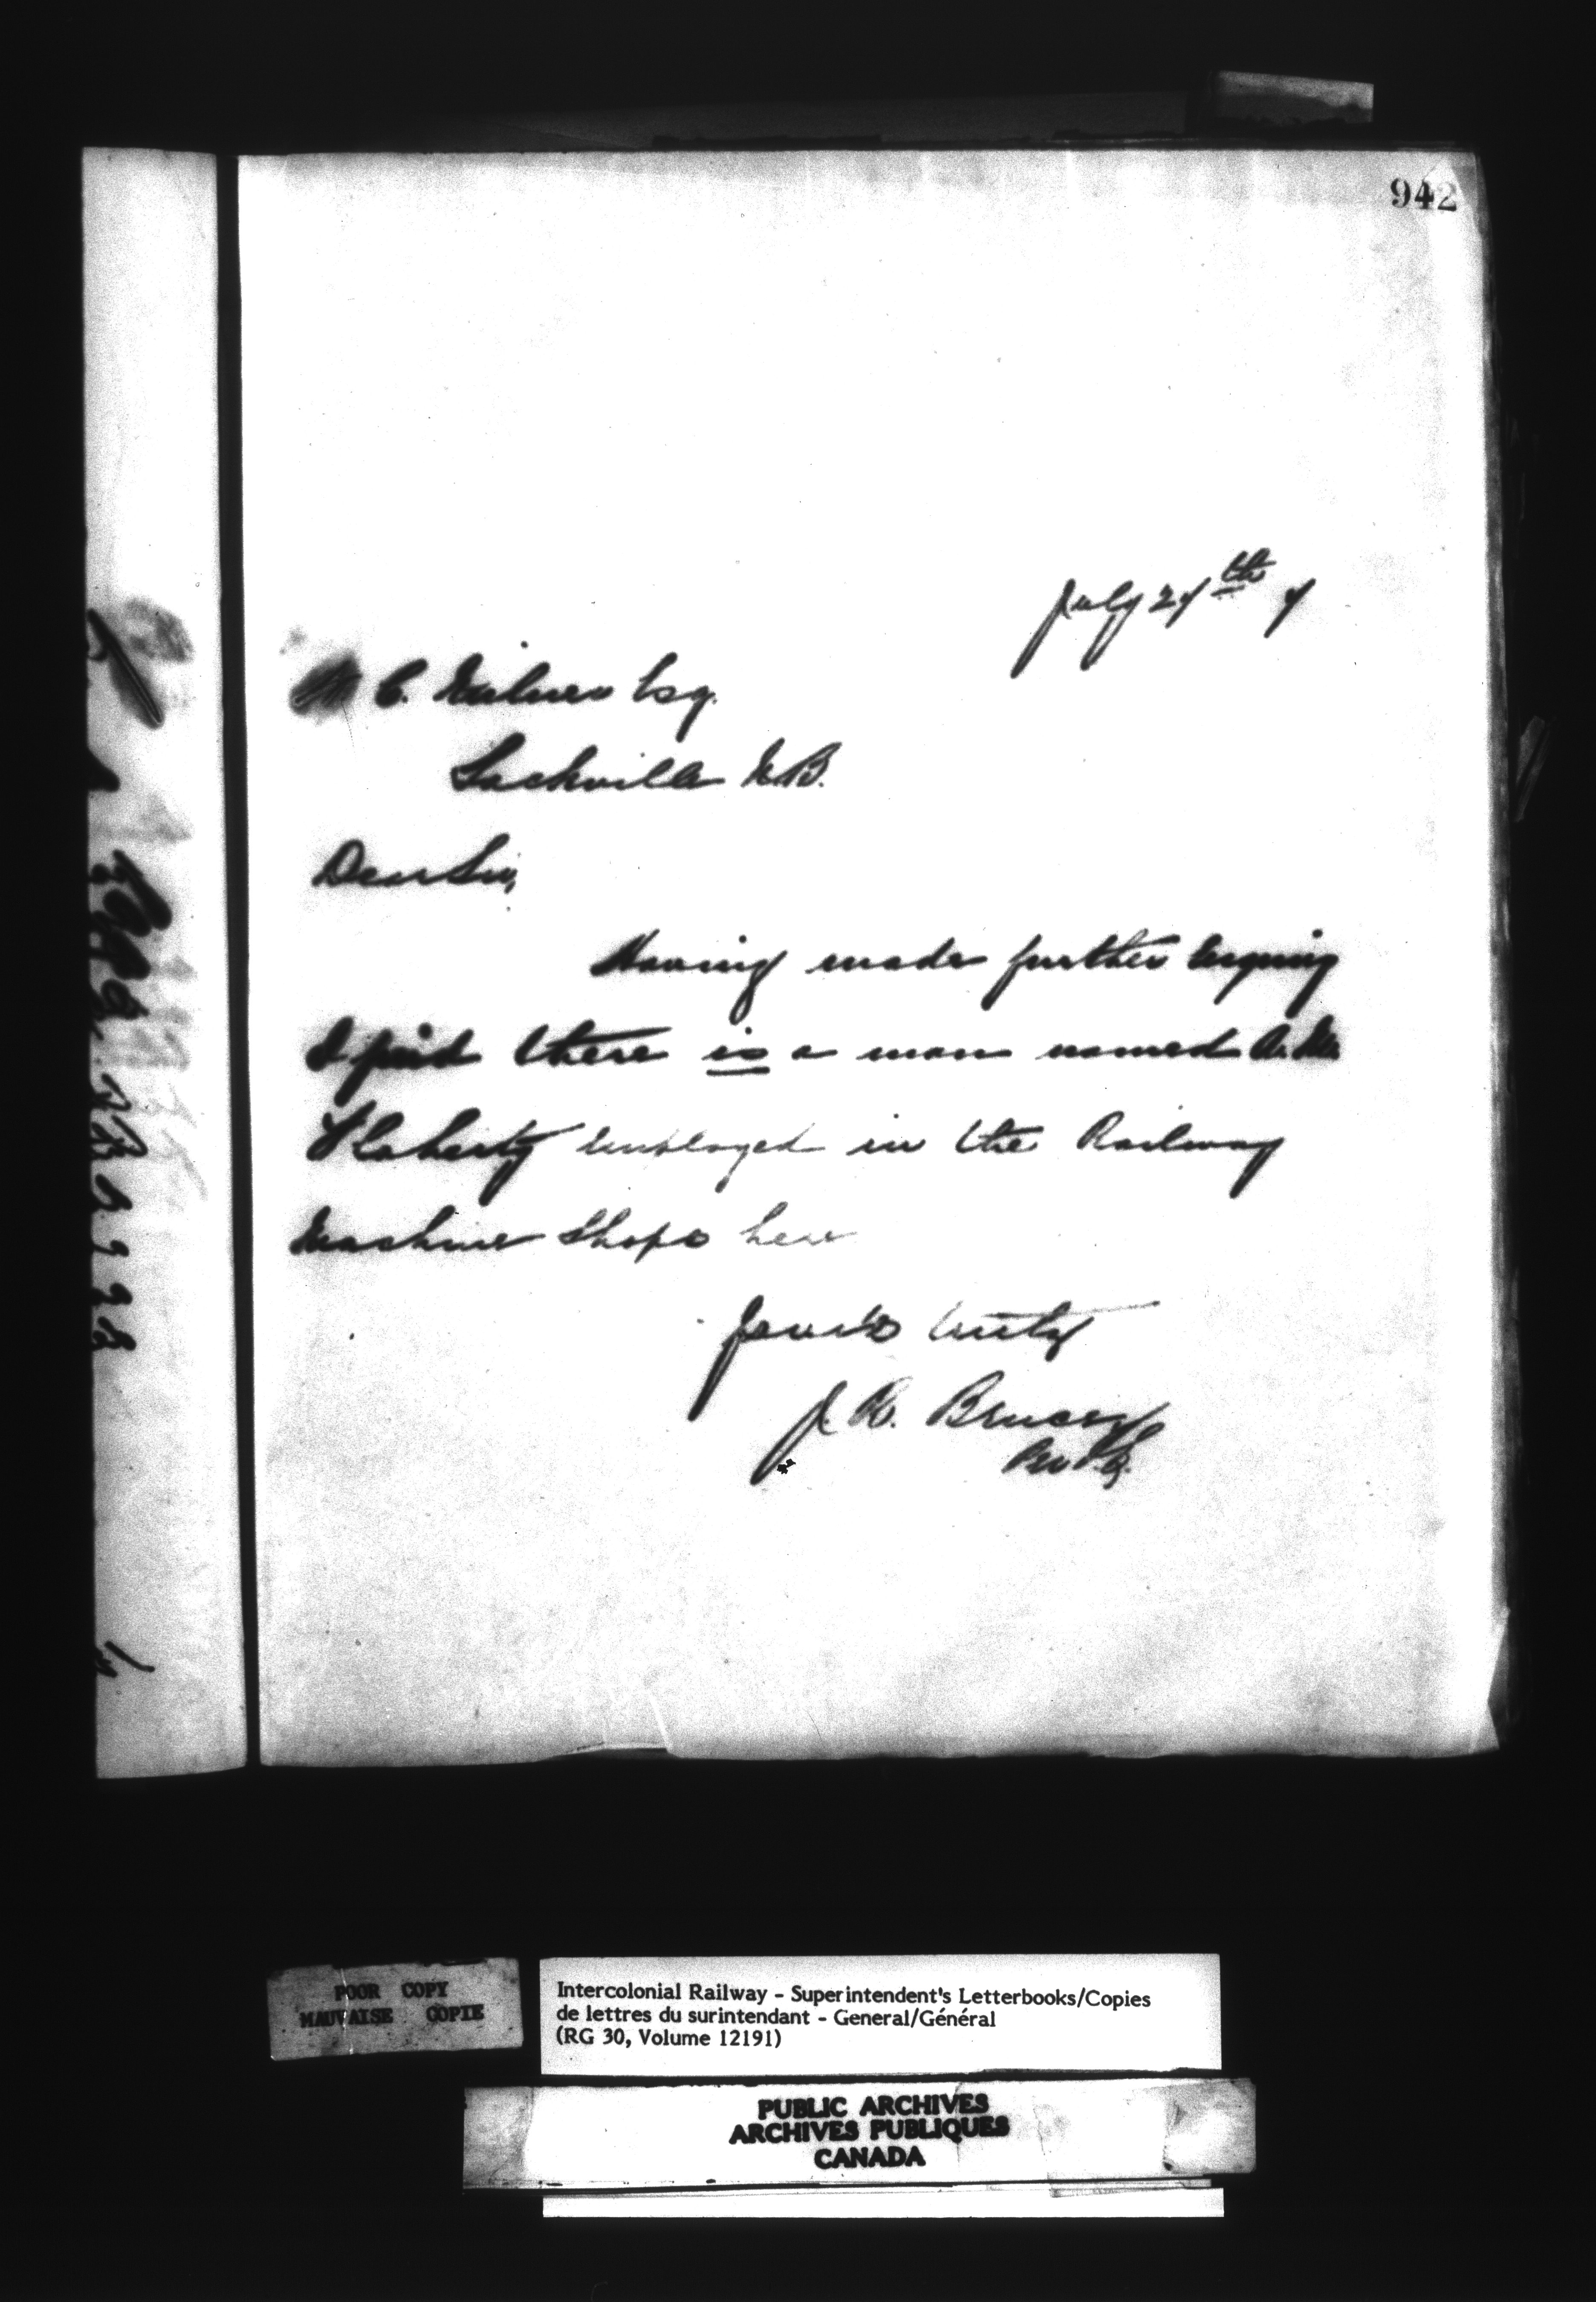 942
July 27th 7
W C. Milner Esq.
Sackville N.B.
Dear Sir,
Having made further enquiry
I find there is a man named
Flaherty employed in the Railway
Machine Shops here
Yours truly
J. R. Bruce
POOR COPY
MAUVAISE COPIE
Intercolonial Railway - Superintendent's Letterbooks/Copies
de lettres du surintendant - General/Général
(RG 30, Volume 12191)
PUBLIC ARCHIVES
ARCHIVES PUBLIQUES
CANADA